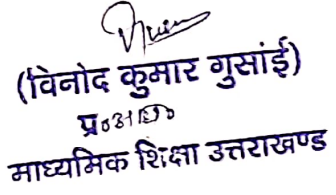 (विनोद कुमार गुसांई)
प्र०अ०
माध्यमिक शिक्षा उत्तराखण्ड